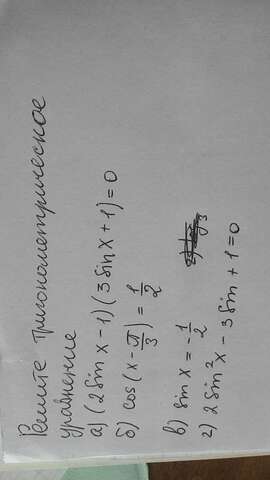 Решите тригонометрическое
уравнение
а) (2sin x - 1)(3sin x + 1) = 0
б) cos(x - π/3) = 1/2
в) sin x = -1/2
г) 2sin²x - 3sin + 1 = 0